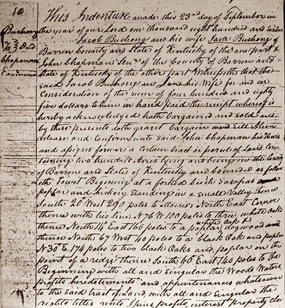 10
Bushong
To } Deed
Chapman
Examined
This Indenture made this 23rd day of September in
the year of our Lord one thousand eight hundred and
Jacob Bushong and his wife Jane Bushong of
Barren County and State of Kentucky of the one part &
John Chapman Senr of the County of Barren and
State of Kentucky of the other part Witnesseth that the
said Jacob Bushong and Jane his Wife for and in
Consideration of the sum of four hundred and eighty
five dollars to them in hand paid the receipt whereof is
hereby acknowledged hath bargained and sold and
by these presents doth grant bargain and sell alien
release and Confirm unto said John Chapman his heirs
and assigns forever a Certain tract or parcel of land Con-
taining two hundred Acres lying and being in the County
of Barren and State of Kentucky and bounded as follows
(towit) Beginning at a forked
poplar and hickory Standing in a small Valley thence
South 20 West 290 poles to Stones North East Corner
thence with his line N 76 W 100 poles to three white oaks
thence North 14 East 160 poles to a poplar dogwood and
thence North 67 West 40 poles to a black Oak and poplar
N 30 E 74 poles to two black Oaks and poplar on the
point of a ridge thence South 60 East 140 poles to the
Beginning with all and Singular the Woods Waters
profits heraditaments and appurtenances whatsoever
to the said tract of land with all and Singular the
rights titles rents Issues profits interest property cla